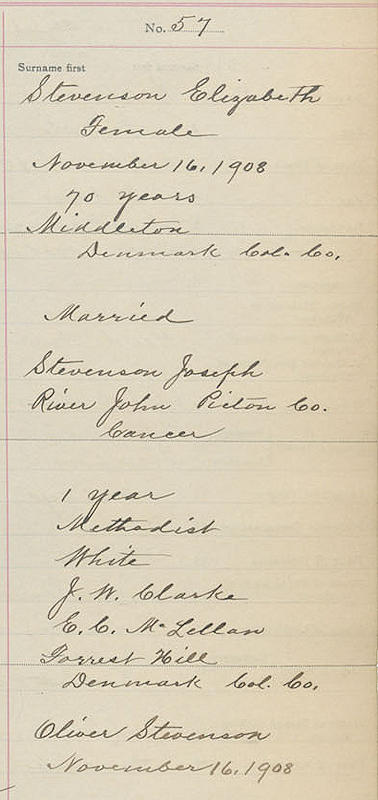 No. 57
Surname first
Stevenson Elizabeth
Female
November 16, 1908
70 years
Middleton
Denmark Col. Co.
Married
Stevenson Joseph
River John Picton Co.
Cancer
1 year
Methodist
White
J. W. Clarke
E. C. McLellan
Forrest Hill
Denmark Col. Co.
Oliver Stevenson
November 16, 1908